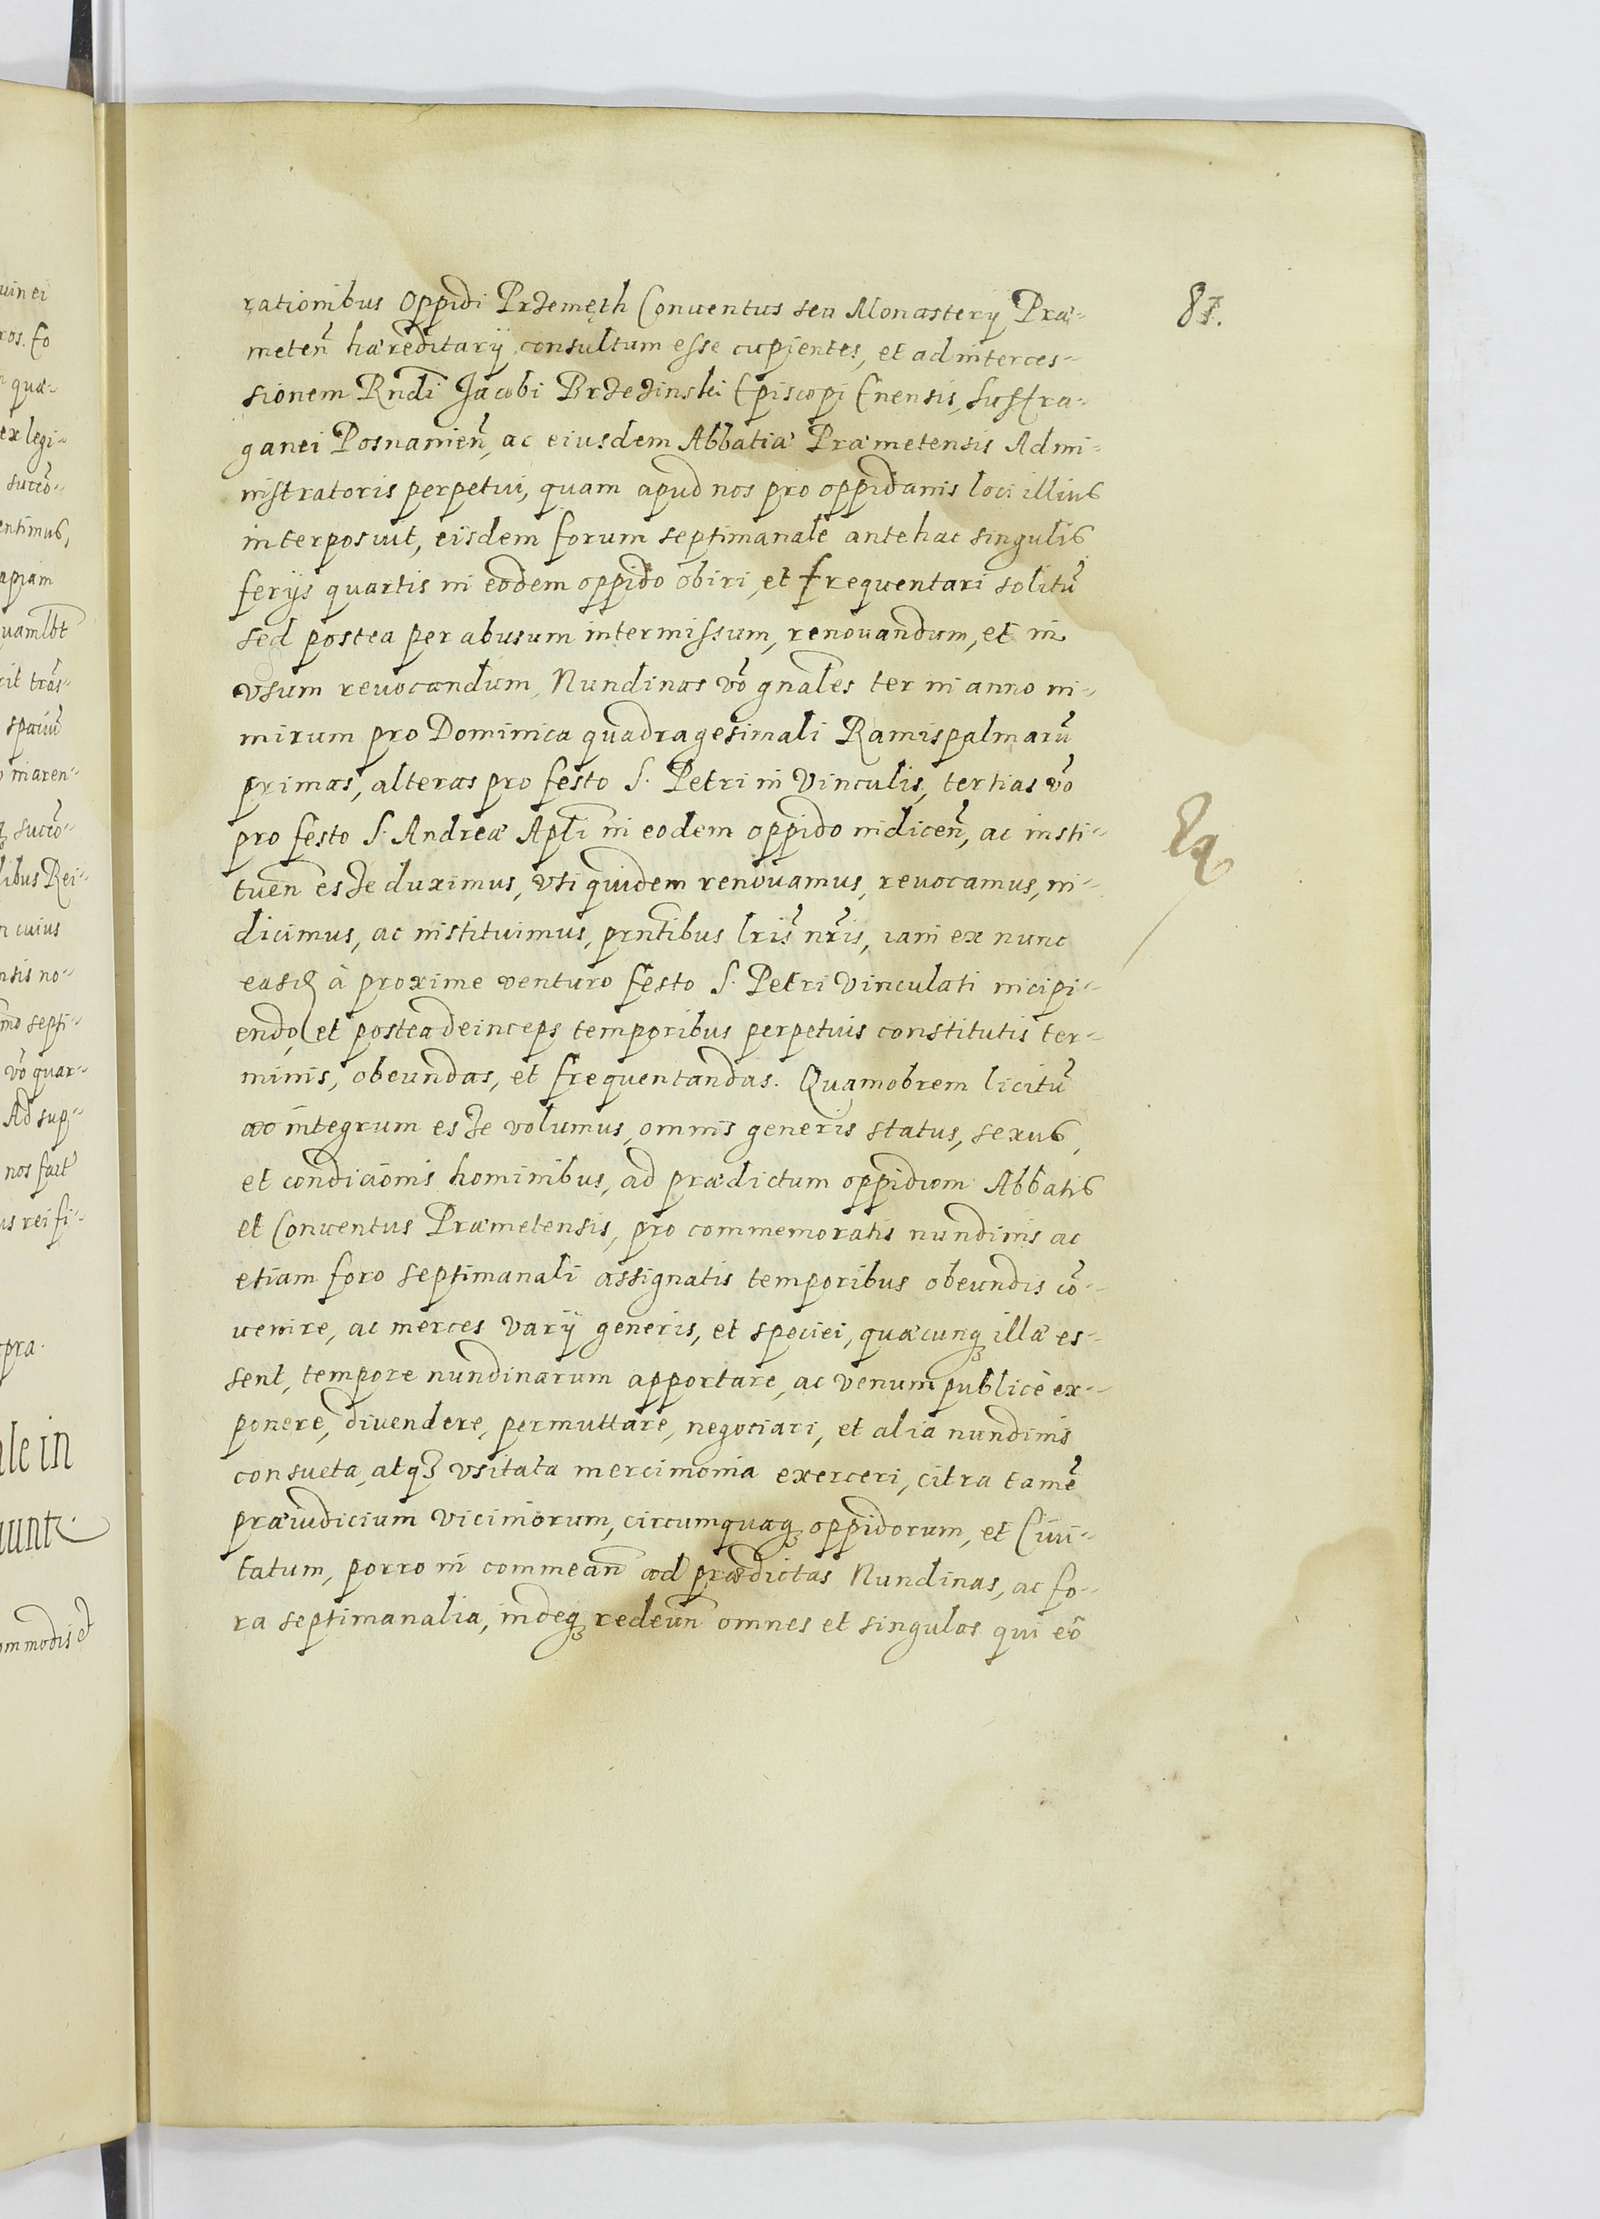 rationibus Oppidi Przemęth Conuentus seu Monasterij Præ-
meten̄ hæreditarij consultum esse cupientes, et ad interces-
sionem Rndi Jacobi Brzezinski Episcopi Enensis, suffra-
ganei Posnanien̄, ac eiusdem Abbatiæ Præmetensis Admi-
nistratoris perpetui, quam apud nos pro oppidanis loci illius
interposuit, eisdem forum septimanale antehac singulis
ferijs quartis in eodem oppido obiri, et frequentari solitū
sed postea per abusum intermissum, renouandum, et in
vsum reuocandum, Nundinas vō gnales ter in anno ni-
mirum pro Dominica quadragesimali Ramispalmarū
primas, alteras pro festo S. Petri in Vinculis, tertias vō
pro festo S. Andreæ Apli in eodem oppido indicen̄, ac insti-
tuen̄ esse duximus, vti quidem renouamus, reuocamus, in-
dicimus, ac instituimus, prntibus lris nris, iam ex nunc
easq à proxime venturo festo S. Petri Vinculati incipi-
endo, et postea deinceps temporibus perpetuis constitutis ter-
minis, obeundas, et frequentandas. Quamobrem licitū
ac integrum esse volumus, omnis generis status, sexus,
et condicionis hominibus, ad prædictum oppidum Abbatis
et Conuentus Præmetensis, pro commemoratis nundinis ac
etiam foro septimanali assignatis temporibus obeundis cō-
uenire, ac merces varij generis, et speciei, quæcunq illæ es-
sent, tempore nundinarum apportare, ac venum publicè ex-
ponere, diuendere, permuttare, negociari, et alia nundinis
consueta, atq vsitata mercimonia exerceri, citra tamē
præiudicium vicinorum, circumquaq oppidorum, et Ciui-
tatum, porro in commean̄ ad prædictas Nundinas, ac fo-
ra septimanalia, indeq redeun̄ omnes et singulos qui eō